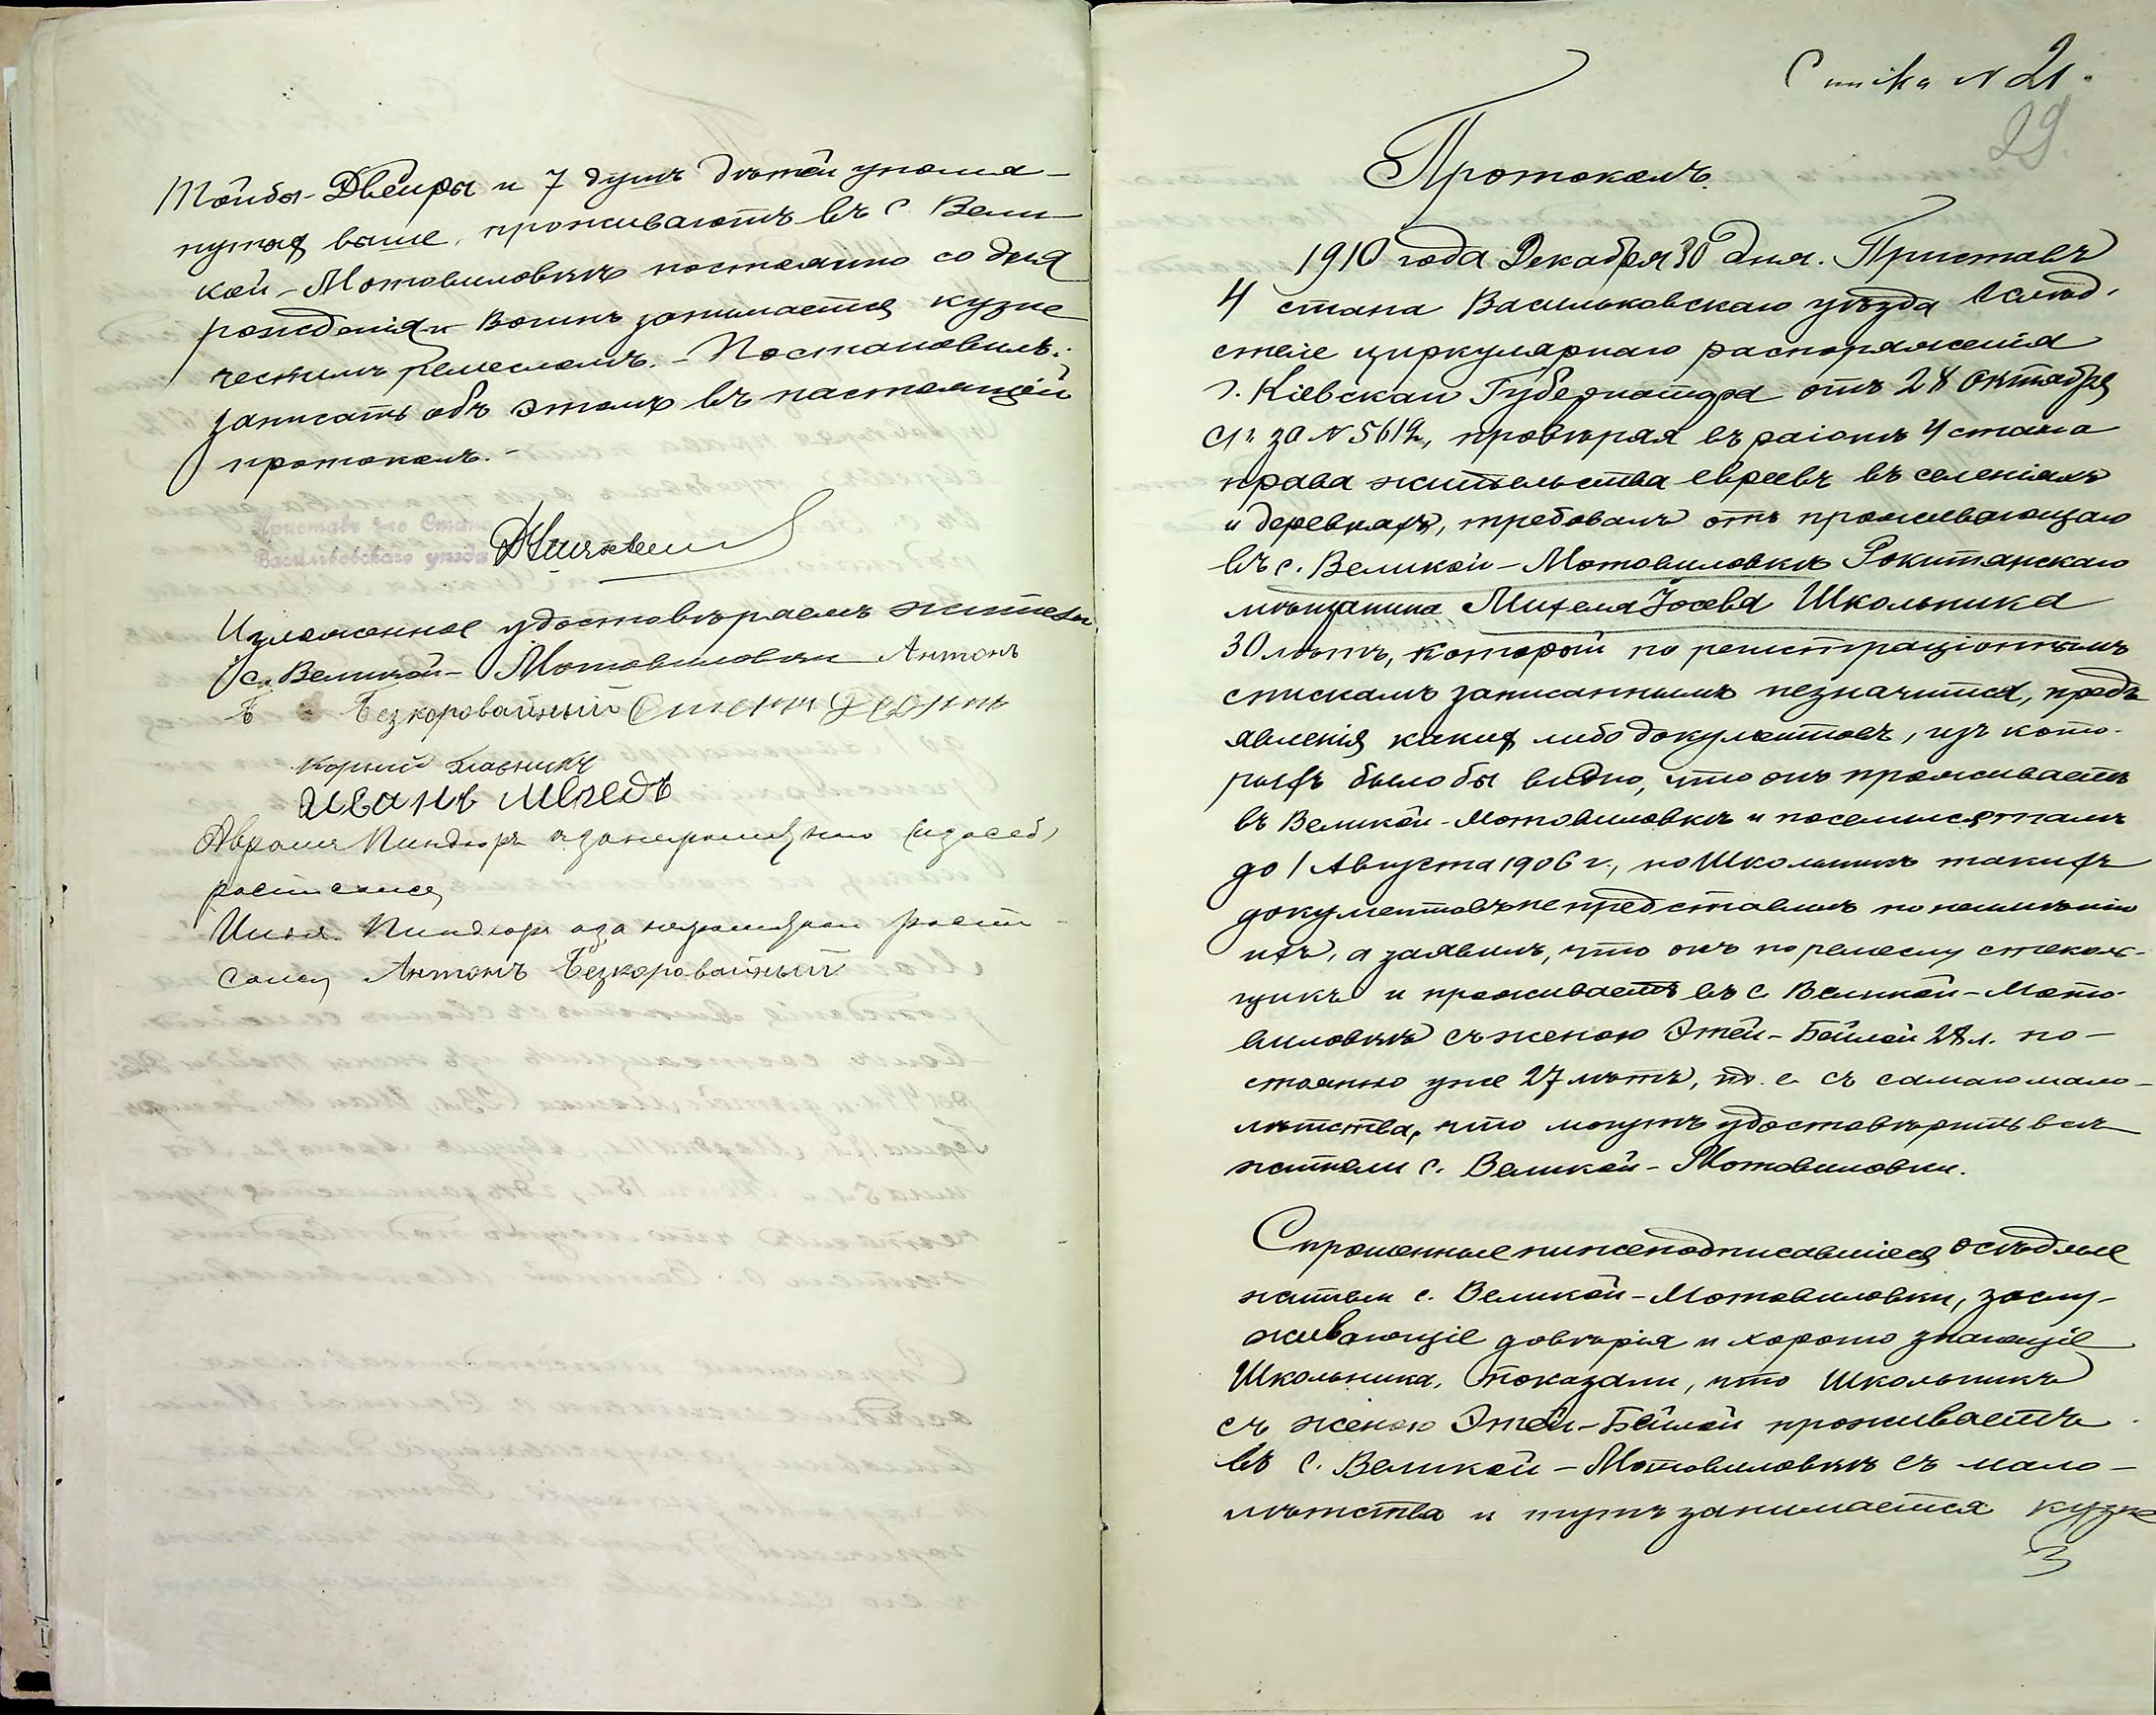 Тойбы-Двейры и 7 душъ дѣтей упомя-
нутыя выше, проживаютъ въ с. Вели-
кой-Мотовиловкѣ постоянно со дня
рожденія и Вотинъ занимается кузне
ческимъ ремесломъ. - Постановилъ:
записать объ этомъ въ настоящій
протоколъ. -
Приставъ 4-го Стана
Васильковскаго уѣзда
Изложенное удостовѣряемъ жители
с. Великой-Мотовиловки Антонъ
Безкоровайный
Иванъ Шведъ
Аврамъ Пиндюръ а за неграмотнаго и за себя
росписался
Пиндюръ а за неграмотнаго роспи-
сался Антонъ Безкоровайный
Списка № 21.
29
Протоколъ.
1910 года Декабря 30 дня. Приставъ
4 стана Васильковскаго уѣзда вслѣд-
ствіе циркулярнаго распоряженія
г. Кіевскаго Губернатора отъ 28 Октября
с.г. за № 5619, провѣряя въ раіонѣ 4 стана
права жительства евреевъ въ селеніяхъ
и деревняхъ, требовалъ отъ проживающаго
въ с. Великой-Мотовиловкѣ Рокитянскаго
мѣщанина Михеля Іосева Школьника
30 лѣтъ, который по регистраціоннымъ
спискамъ записаннымъ незначится, предъ
явленія какихъ либо документовъ, изъ кото-
рыхъ было бы видно, что онъ проживаетъ
въ Великой-Мотовиловкѣ и поселился тамъ
до 1 Августа 1906 г., но Школьникъ такихъ
документовъ не представилъ по неимѣнію
ихъ, а заявилъ, что онъ по ремеслу стеколь-
щикъ и проживаетъ въ с. Великой-Мото-
виловкѣ съ женою Этей-Бейлой 28 л. по-
стоянно уже 27 лѣтъ, т. е. съ самаго мало-
лѣтства, что могутъ удостовѣрить всѣ
жители с. Великой-Мотовиловки.
Спрошенные нижеподписавшіеся осѣдлые
жители с. Великой-Мотовиловки, заслу-
живающіе довѣрія и хорошо знающіе
Школьника, показали, что Школьникъ
съ женою Этей-Бейлой проживаетъ
въ с. Великой-Мотовиловкѣ съ мало-
лѣтства и тутъ занимается кузне